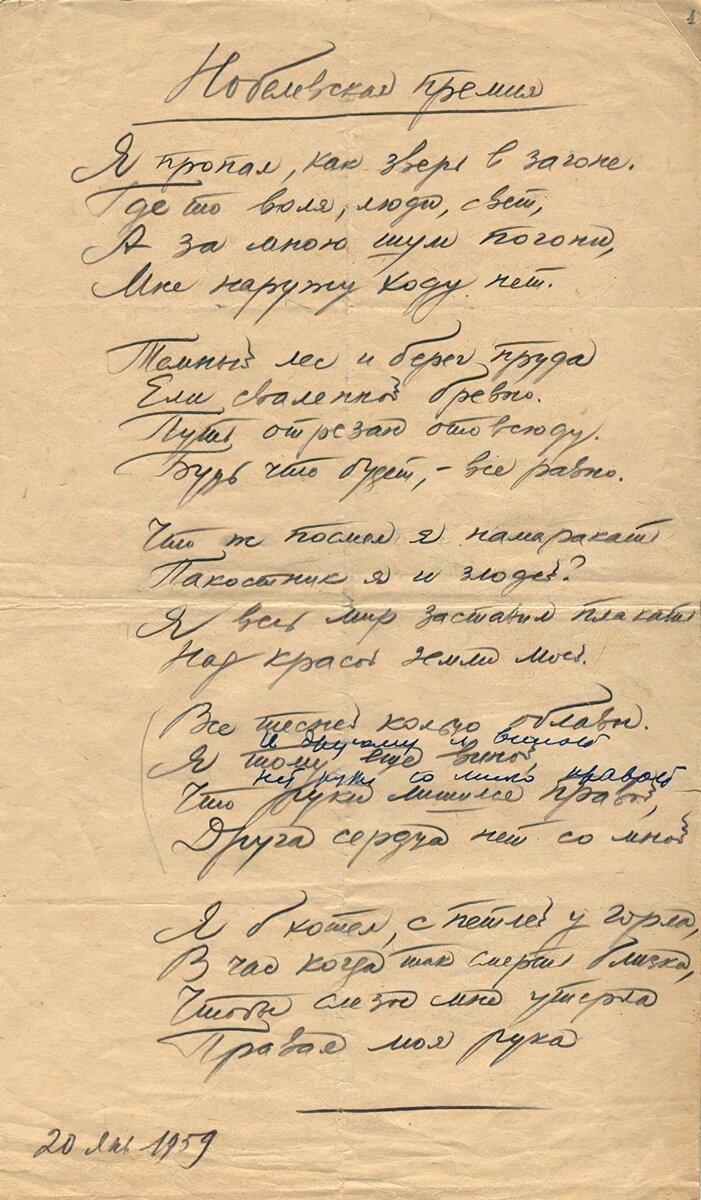 1
Нобелевская премия
Я пропал, как зверь в загоне.
Где то воля, люди, свет,
А за мною шум погони,
Мне наружу ходу нет.
Темный лес и берег пруда
Ели сваленной бревно.
Путь отрезан отовсюду.
Будь что будет, – все равно.
Что ж посмел я намаракать
Пакостник я и злодей?
Я весь мир заставил плакать
Над красой земли моей.
Все тесней кольцо облавы.
И другому я виной
Я тому еще виной,
нет руки со мной правой
Что руки лишился правой,
Друга сердца нет со мной
Я б хотел, с петлей у горла,
В час когда так смерть близка,
Чтобы слезы мне утерла
Правая моя рука
20 янв 1959